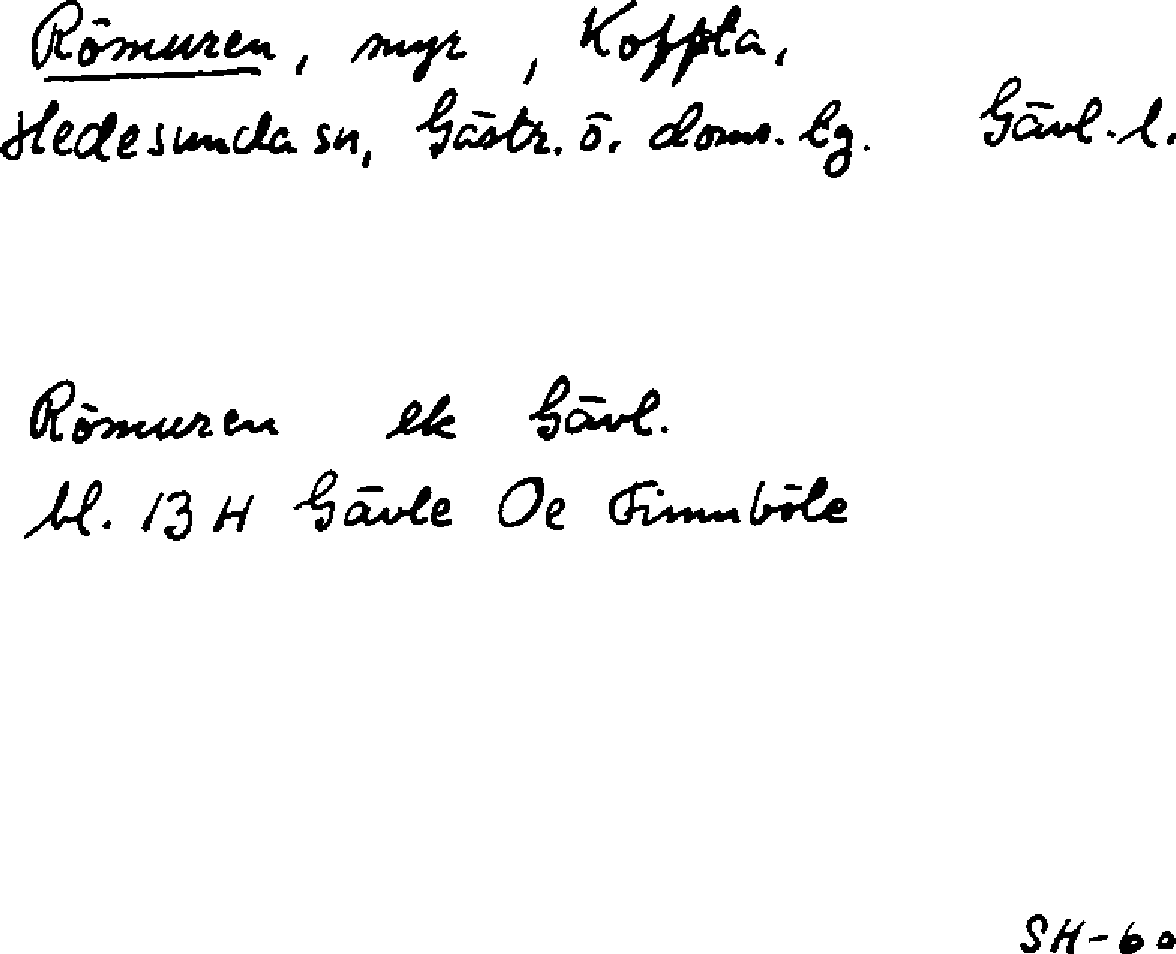 Römuren, myr, Koffsta,
Hedesunda sn, Gästr. ö. doms. lg. Gävl. l.
Römuren ek Gävl.
bl. 13 H Gävle Oe Finnböle
SH-60